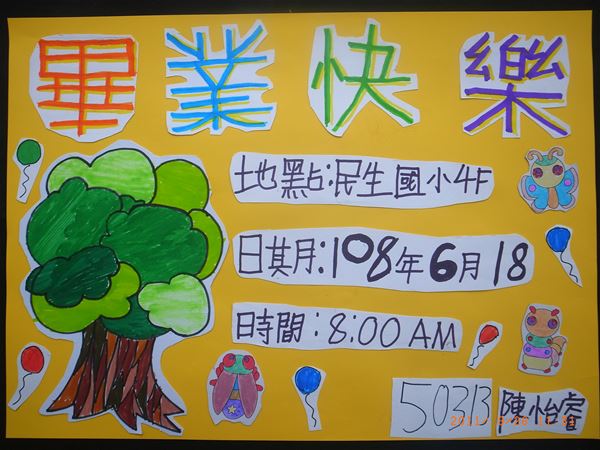 畢業快樂
地點:民生國小4F
日期:108年6月18
時間:8:00AM
50313 陳怡睿